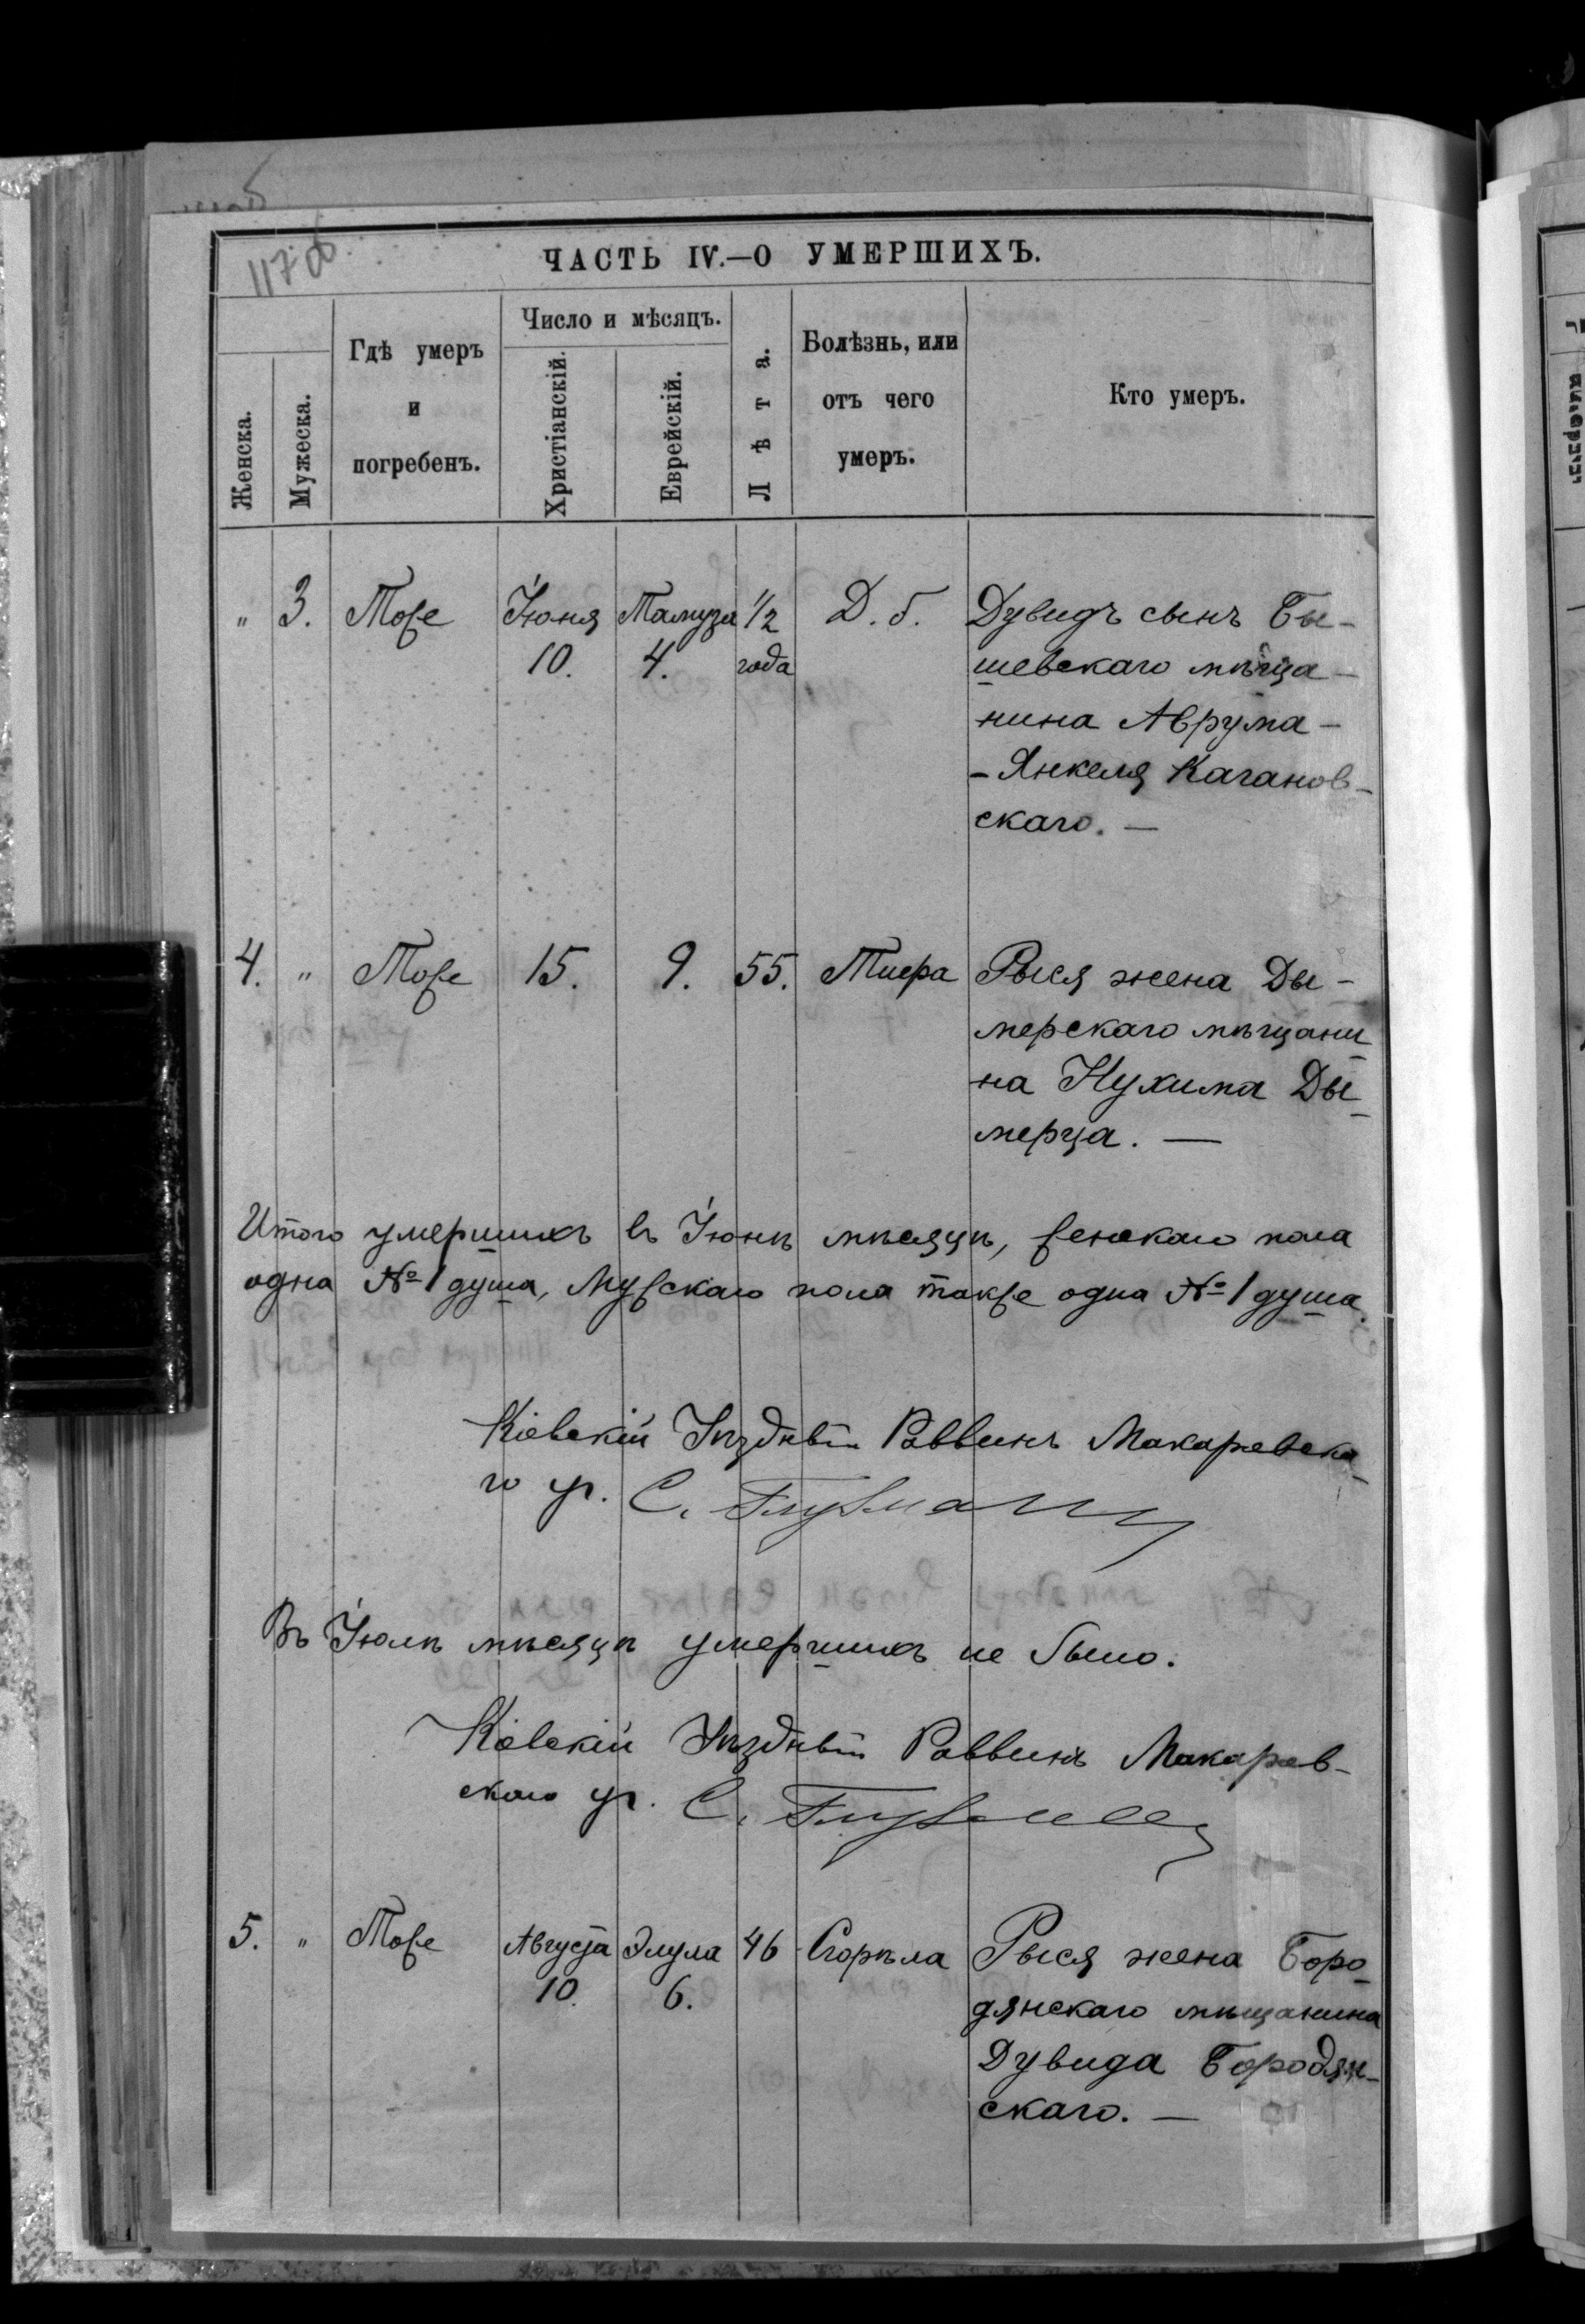 117 об.
ЧАСТЬ IV.—О УМЕРШИХЪ.
Женска.
Мужеска.
Гдѣ умеръ
и
погребенъ.
Число и мѣсяцъ.
Христіанскій.
Еврейскій.
Лѣта.
Болѣзнь, или
отъ чего
умеръ.
Кто умеръ.
" 3. Тоже Іюня Тамуза 1/2 Д. б. Дувидъ сынъ Бы-
10. 4. года шевскаго мѣща-
нина Аврума-
-Янкеля Каганов-
скаго. —
4. " Тоже 15. 9. 55. Тифа Рыся жена Ды-
мерскаго мѣщани-
на Нухима Ды-
мерца. —
Итого умершихъ въ Іюнѣ мѣсяцѣ, женскаго пола
одна № 1 душа, мужскаго пола также одна № 1 душа.
Кіевскій Уѣздный Раввинъ Макаревска-
го уч. С.
Въ Іюлѣ мѣсяцѣ умершихъ не было.
Кіевскій Уѣздный Раввинъ Макарев-
скаго уч. С.
5. " Тоже Августа Элула 46 Сгорѣла Рыся жена Боро-
10. 6. дянскаго мѣщанина
Дувида Бородян-
скаго. —